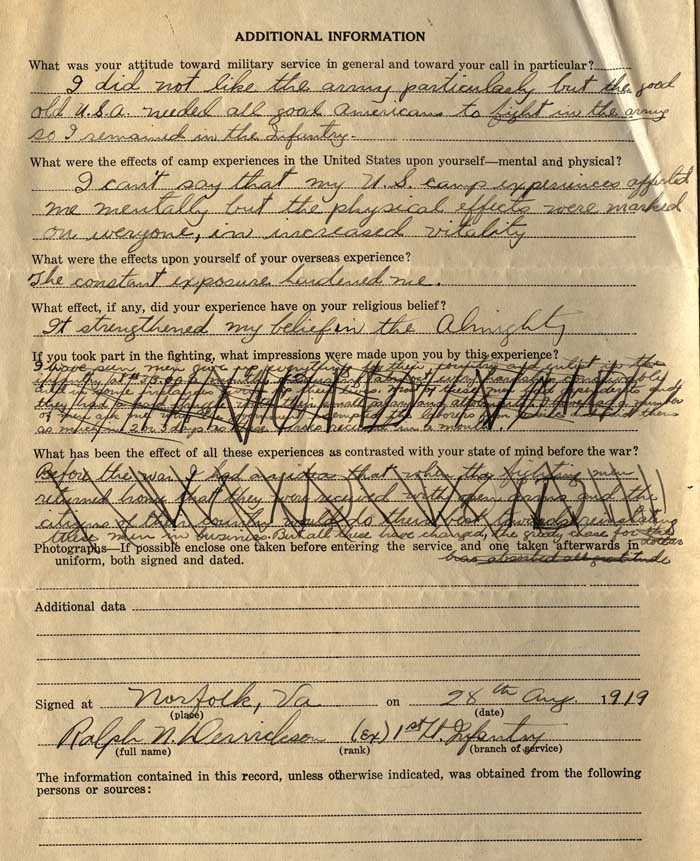 ADDITIONAL INFORMATION
What was your attitude toward military service in general and toward your call in particular?
I did not like the army particularly but the good
old U.S.A. needed all good Americans to fight in the army
so I remained in the Infantry.
What were the effects of camp experiences in the United States upon yourself—mental and physical?
I can't say that my U.S. camp experiences affected
me mentally but the physical effects were marked
on everyone, in increased vitality
What were the effects upon yourself of your overseas experience?
The constant exposure hardened me.
What effect, if any, did your experience have on your religious belief?
It strengthened my belief in the Almighty
If you took part in the fighting, what impressions were made upon you by this experience?
I have seen men give up everything for their country and enlist in the
What has been the effect of all these experiences as contrasted with your state of mind before the war?
Before the war I had an idea that when the fighting men
returned home that they were received with open arms and the
citizens of their country would do their best towards reinstating
these men in business. But all these have changed, the greedy chase for the dollar
has absorbed all gratitude
Photographs—If possible enclose one taken before entering the service and one taken afterwards in
uniform, both signed and dated.
Additional data
Signed at Norfolk, Va on 28th Aug. 1919
(place) (date)
Ralph N. Derrickson (ex) 1st Lt Infantry
(full name) (rank) (branch of service)
The information contained in this record, unless otherwise indicated, was obtained from the following
persons or sources: